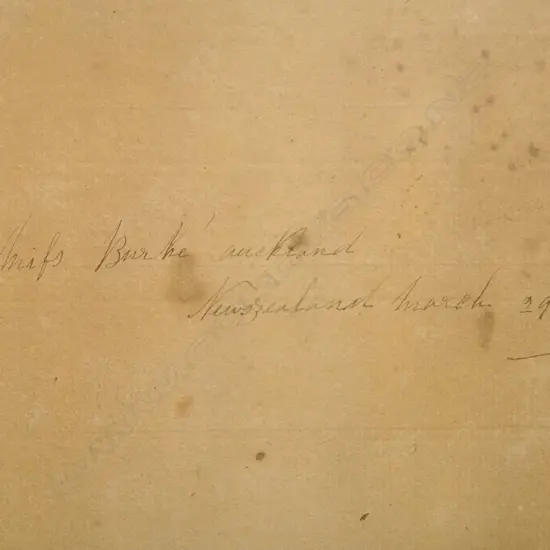 Miſs Burke auckland
Newszealand march 29